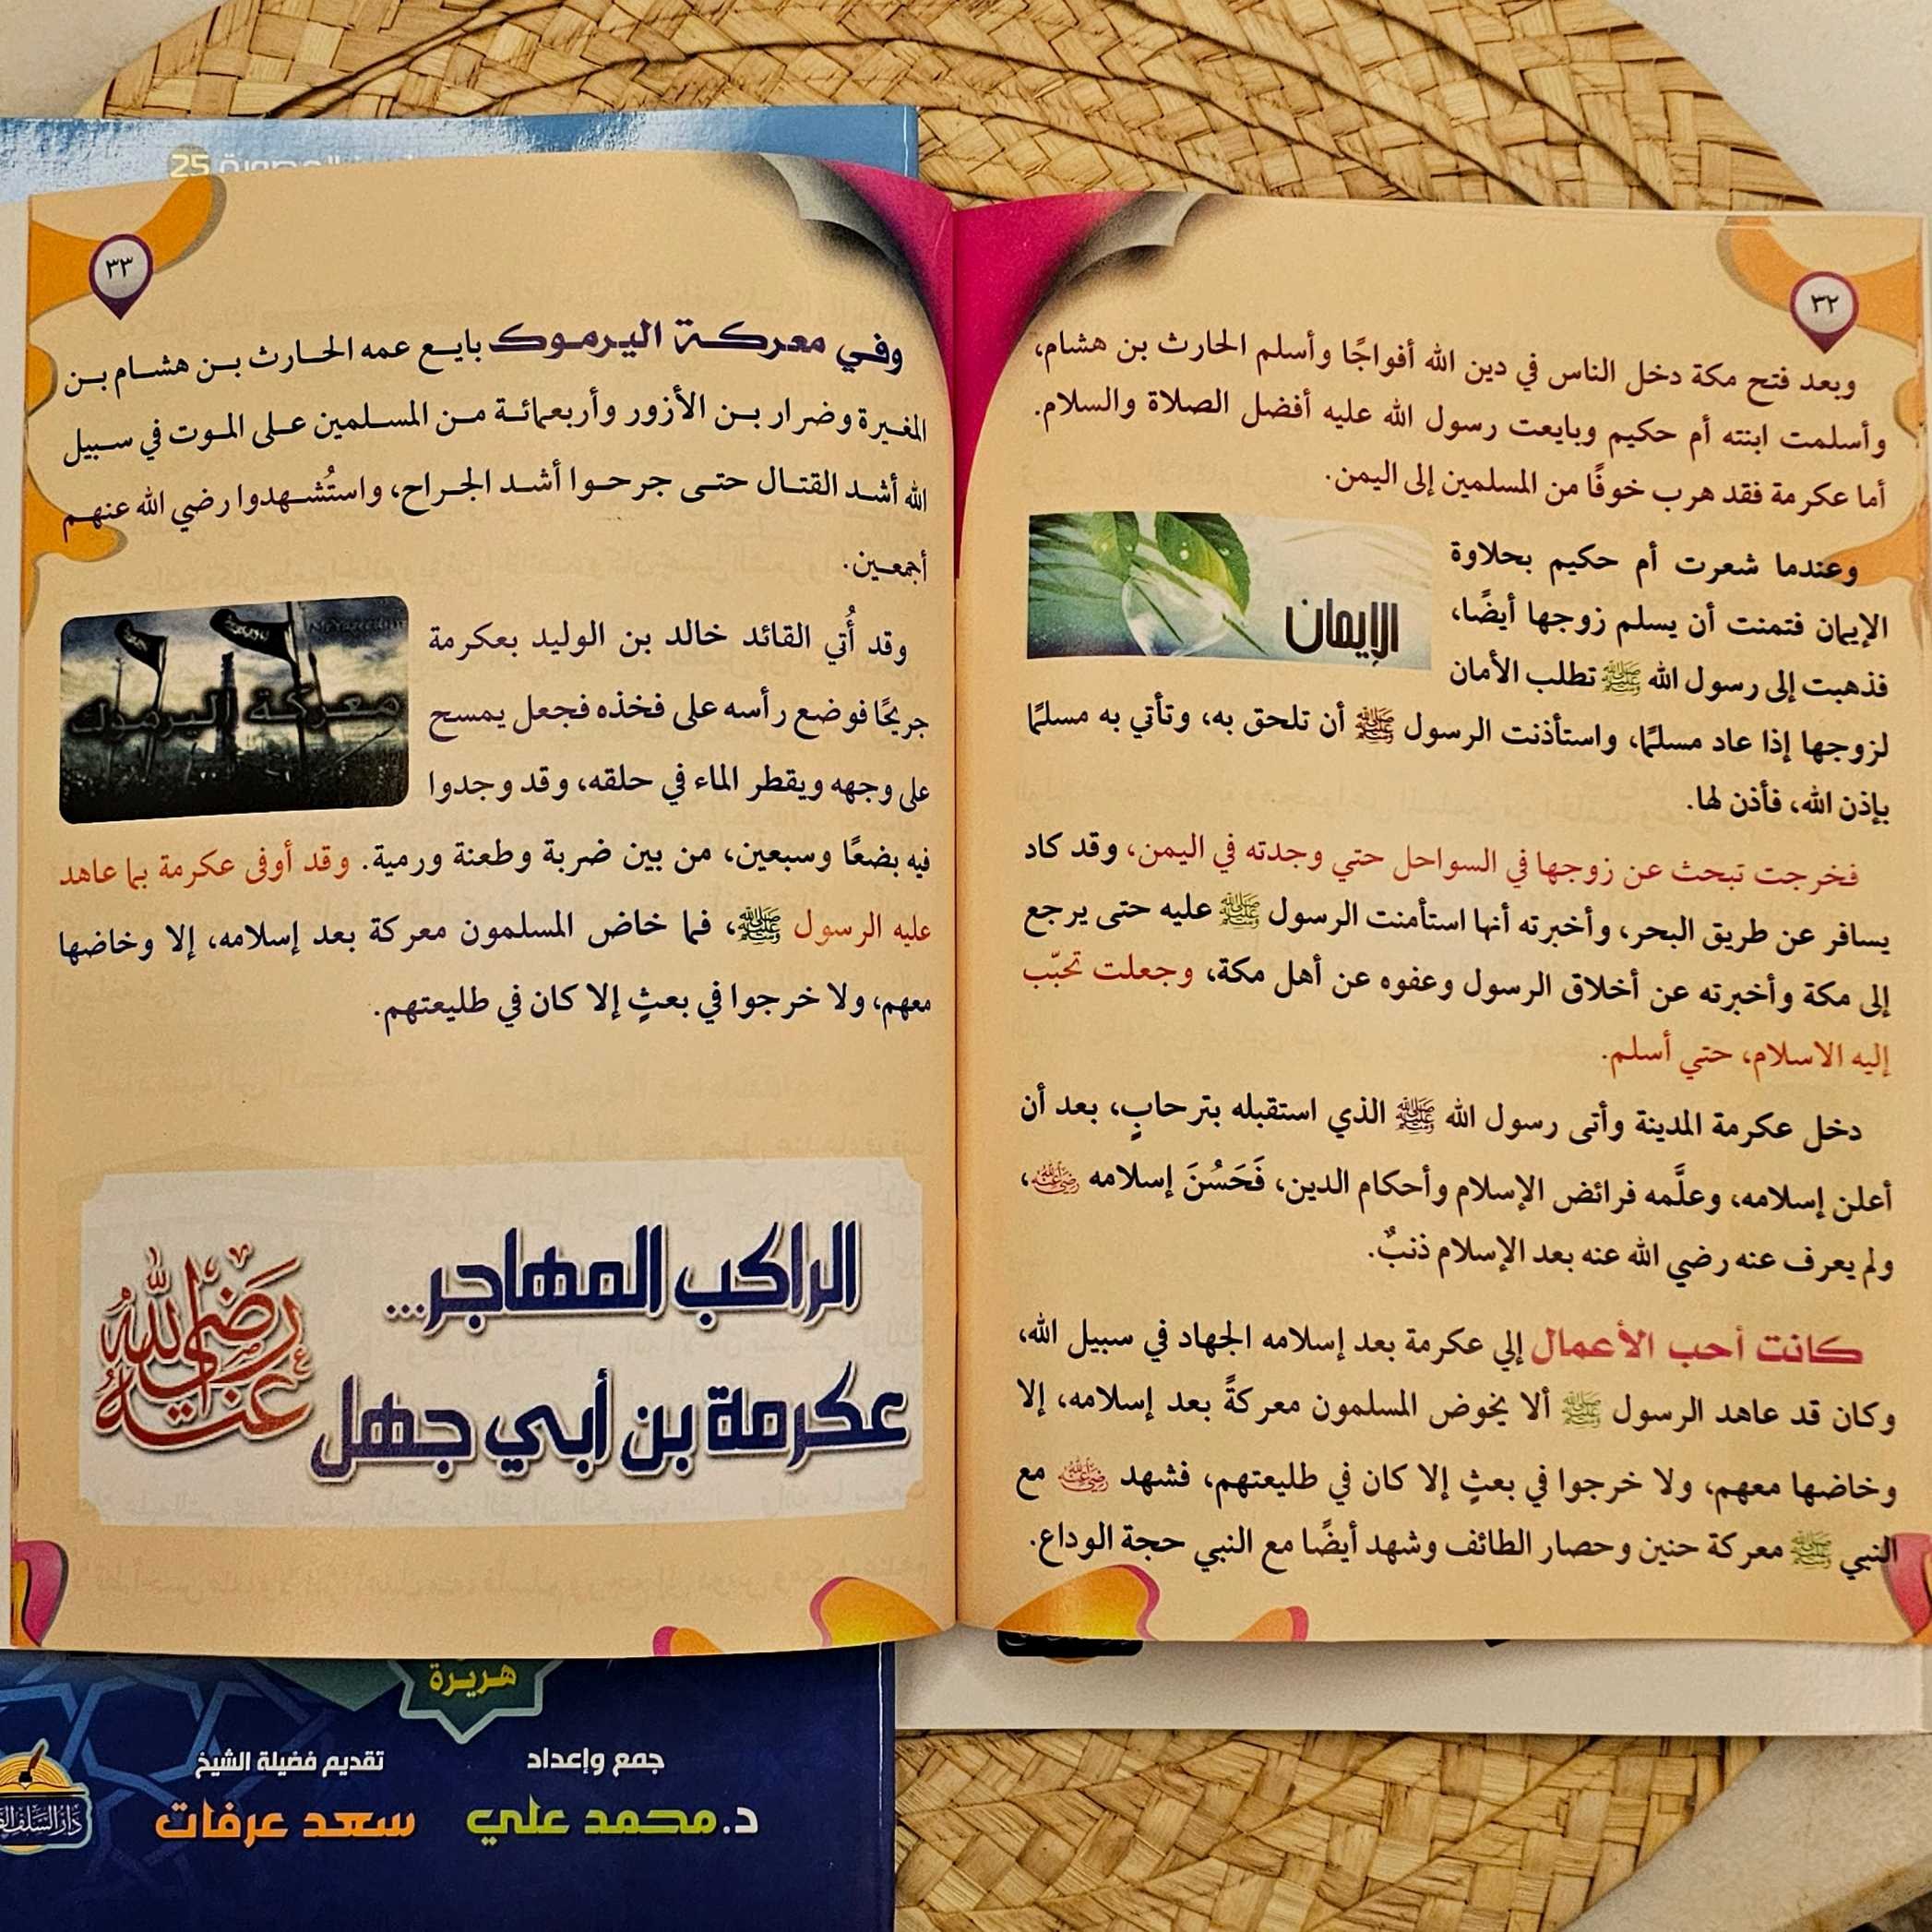 ٣٢
وبعد فتح مكة دخل الناس في دين الله أفواجًا وأسلم الحارث بن هشام،
وأسلمت ابنته أم حكيم وبايعت رسول الله عليه أفضل الصلاة والسلام.
أما عكرمة فقد هرب خوفًا من المسلمين إلى اليمن.
وعندما شعرت أم حكيم بحلاوة
الإيمان فتمنت أن يسلم زوجها أيضًا،
فذهبت إلى رسول الله ﷺ تطلب الأمان
الإيمان
لزوجها إذا عاد مسلمًا، واستأذنت الرسول ﷺ أن تلحق به، وتأتي به مسلمًا
بإذن الله، فأذن لها.
فخرجت تبحث عن زوجها في السواحل حتي وجدته في اليمن، وقد كاد
يسافر عن طريق البحر، وأخبرته أنها استأمنت الرسول ﷺ عليه حتى يرجع
إلى مكة وأخبرته عن أخلاق الرسول وعفوه عن أهل مكة، وجعلت تحبّب
إليه الاسلام، حتي أسلم.
دخل عكرمة المدينة وأتى رسول الله ﷺ الذي استقبله بترحابٍ، بعد أن
أعلن إسلامه، وعلَّمه فرائض الإسلام وأحكام الدين، فَحَسُنَ إسلامه رضي الله عنه،
ولم يعرف عنه رضي الله عنه بعد الإسلام ذنبٌ.
كانت أحب الأعمال إلي عكرمة بعد إسلامه الجهاد في سبيل الله،
وكان قد عاهد الرسول ﷺ ألا يخوض المسلمون معركةً بعد إسلامه، إلا
وخاضها معهم، ولا خرجوا في بعثٍ إلا كان في طليعتهم، فشهد رضي الله عنه مع
النبي ﷺ معركة حنين وحصار الطائف وشهد أيضًا مع النبي حجة الوداع.
٣٣
وفي معركة اليرموك بايع عمه الحارث بن هشام بن
المغيرة وضرار بن الأزور وأربعمائة من المسلمين على الموت في سبيل
الله أشد القتال حتى جرحوا أشد الجراح، واستُشهدوا رضي الله عنهم
أجمعين.
وقد أُتي القائد خالد بن الوليد بعكرمة
جريحًا فوضع رأسه على فخذه فجعل يمسح
على وجهه ويقطر الماء في حلقه، وقد وجدوا
معركة اليرموك
فيه بضعًا وسبعين، من بين ضربة وطعنة ورمية. وقد أوفى عكرمة بما عاهد
عليه الرسول ﷺ، فما خاض المسلمون معركة بعد إسلامه، إلا وخاضها
معهم، ولا خرجوا في بعثٍ إلا كان في طليعتهم.
الراكب المهاجر...
عكرمة بن أبي جهل
رَضِيَ اللهُ عَنْهُ
25
هريرة
جمع وإعداد
د.محمد علي
تقديم فضيلة الشيخ
سعد عرفات